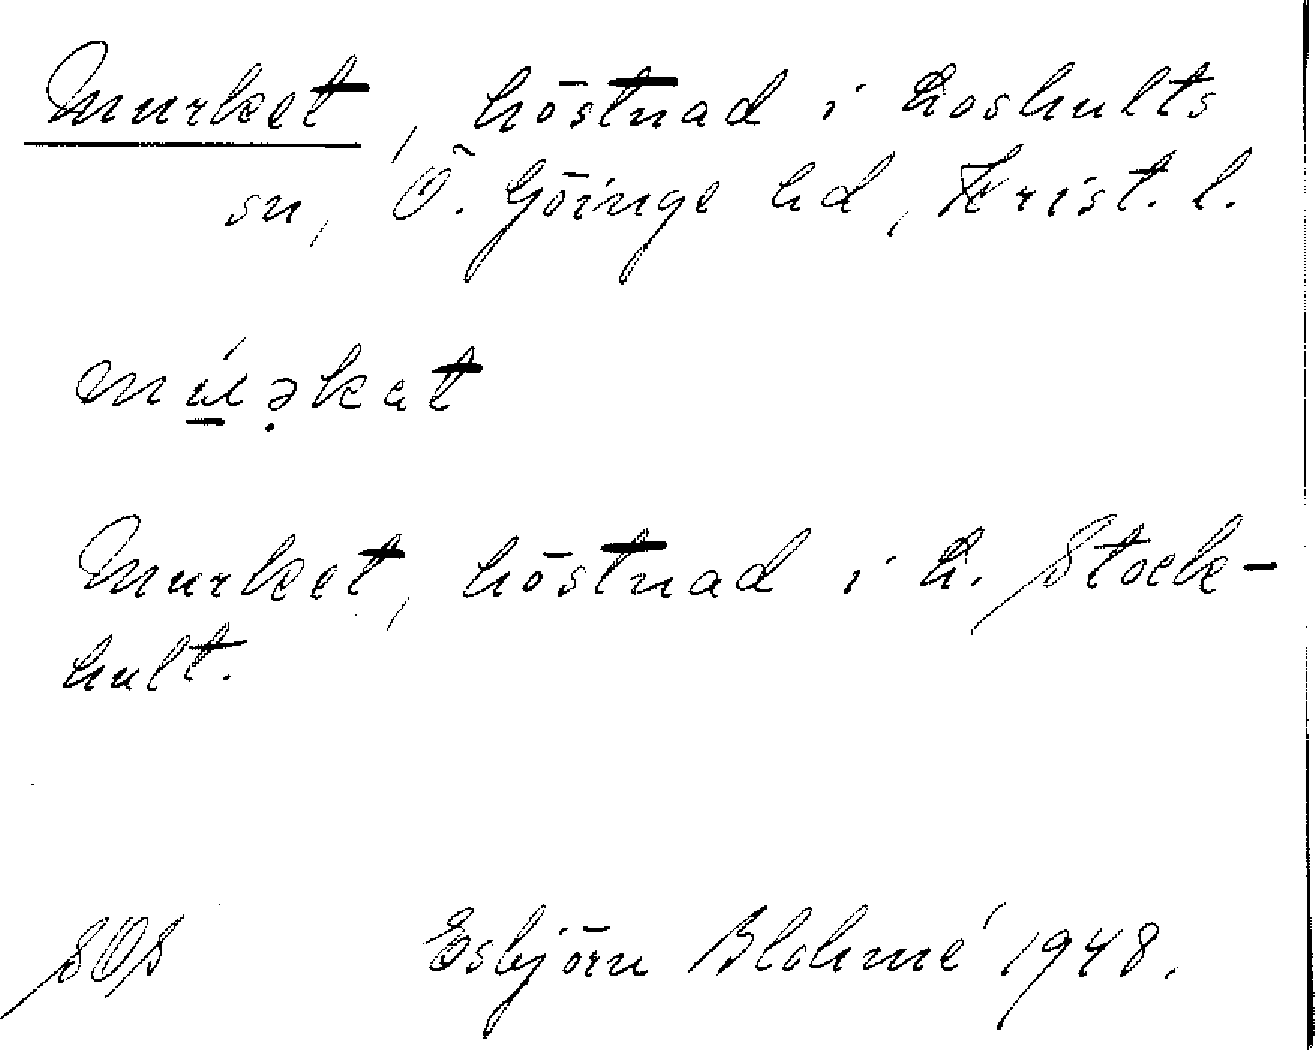 Murket, höstnad i Loshults
sn, Ö. Göinge hd, Krist. l.
Murket, höstnad i L. Stock-
hult.
SOS Esbjörn Blohmé 1948.